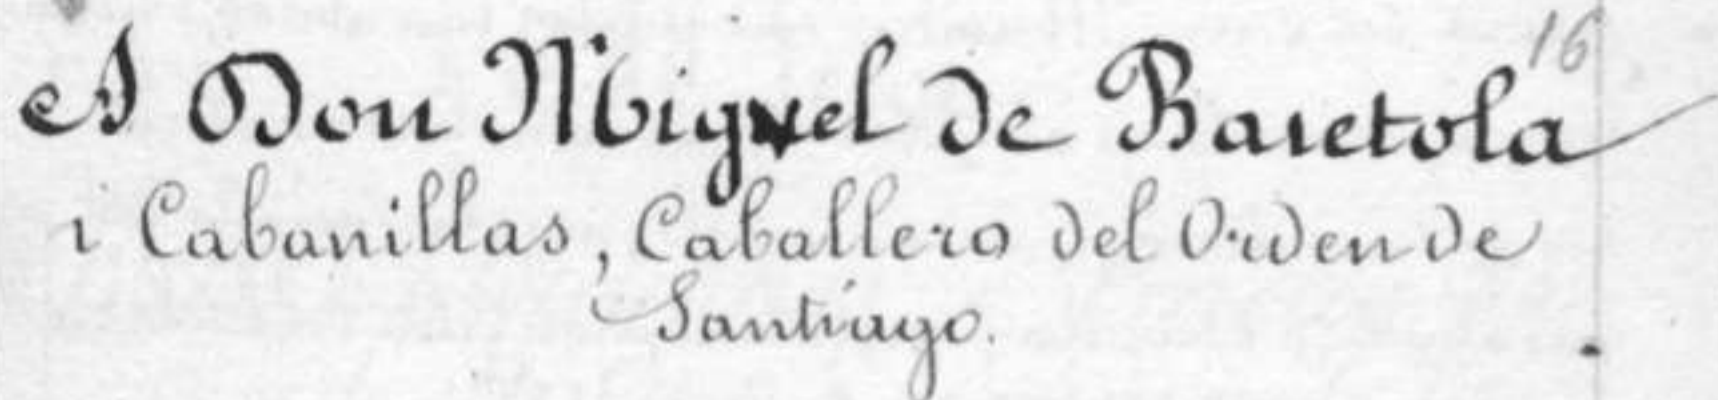 16
A Don Miguel de Baretola
i Cabanillas, Caballero del Orden de
Santiago.